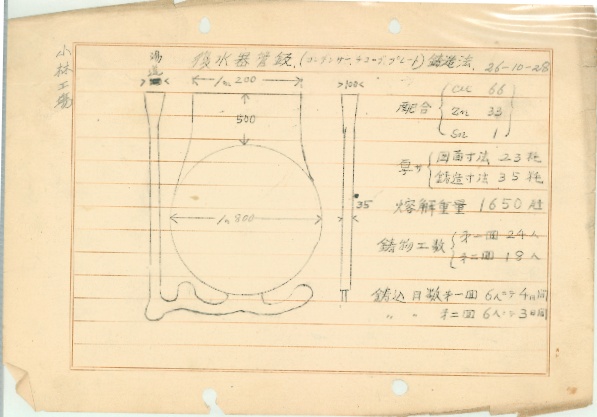 小林工場
復水器管鈑 (コンデンサーチューブプレート) 鋳造法. 26-10-28
湯道
1m200
100
500
配合 Cu 66
Zn 33
Sn 1
厚サ 図面寸法 23粍
鋳造寸法 35粍
35
熔解重量 1650瓩
1m800
鋳物工数 第一回 24人
第二回 18人
鋳込日数 第一回 6人ニテ 4日間
〃 〃 第二回 6人ニテ 3日間